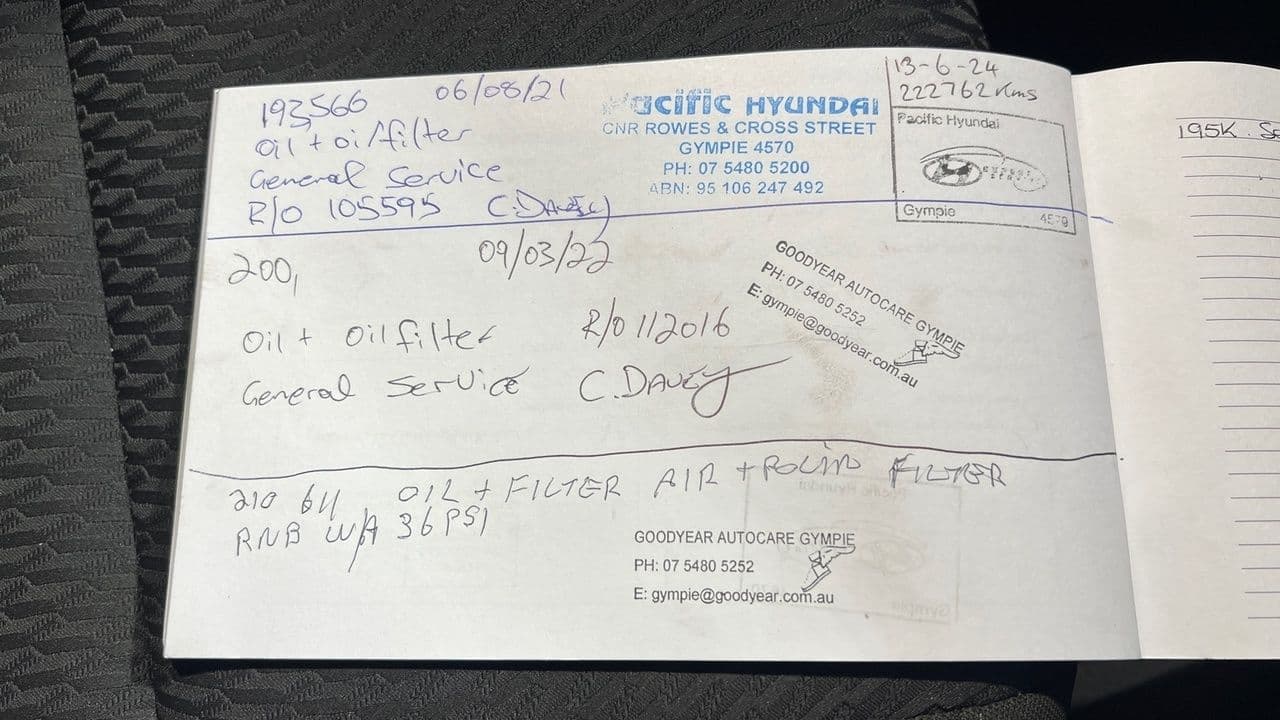 193,566 06/08/21
Oil + oil filter
General Service
R/O 105595 C.Davey
Pacific HYUNDAI
CNR ROWES & CROSS STREET
GYMPIE 4570
PH: 07 5480 5200
ABN: 95 106 247 492
13-6-24
222762 Kms
Pacific Hyundai
Gympie 4570
195K.
200, 09/03/22
Oil + Oil filter R/O 112016
General Service C.DAVEY
GOODYEAR AUTOCARE GYMPIE
PH: 07 5480 5252
E: gympie@goodyear.com.au
210 611 OIL + FILTER AIR + POLLIN FILTER
RNB W/A 36 PSI
GOODYEAR AUTOCARE GYMPIE
PH: 07 5480 5252
E: gympie@goodyear.com.au